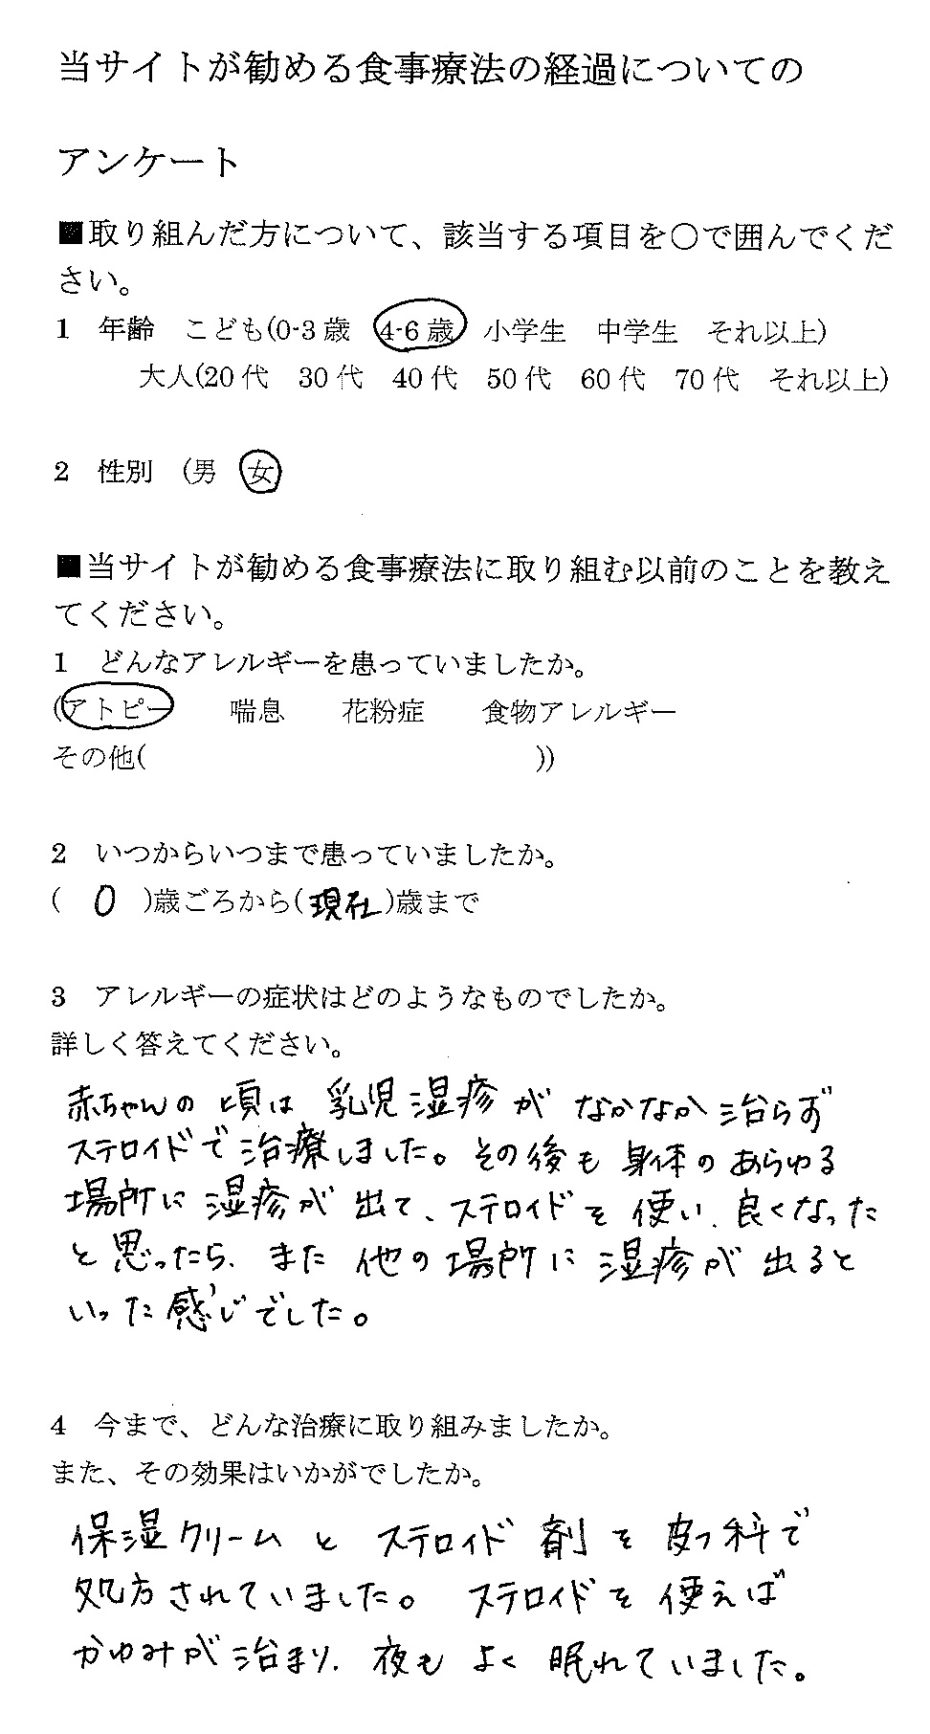 当サイトが勧める食事療法の経過についての
アンケート
■取り組んだ方について、該当する項目を○で囲んでくだ
さい。
1 年齢 こども(0-3歳 4-6歳 小学生 中学生 それ以上)
大人(20代 30代 40代 50代 60代 70代 それ以上)
2 性別 (男 女
■当サイトが勧める食事療法に取り組む以前のことを教え
てください。
1 どんなアレルギーを患っていましたか。
(アトピー 喘息 花粉症 食物アレルギー
その他( ))
2 いつからいつまで患っていましたか。
( 0 )歳ごろから(現在)歳まで
3 アレルギーの症状はどのようなものでしたか。
詳しく答えてください。
赤ちゃんの頃は乳児湿疹がなかなか治らず
ステロイドで治療しました。その後も身体のあらゆる
場所に湿疹が出て、ステロイドを使い、良くなった
と思ったら、また他の場所に湿疹が出ると
いった感じでした。
4 今まで、どんな治療に取り組みましたか。
また、その効果はいかがでしたか。
保湿クリームとステロイド剤を皮フ科で
処方されていました。ステロイドを使えば
かゆみが治まり、夜もよく眠れていました。